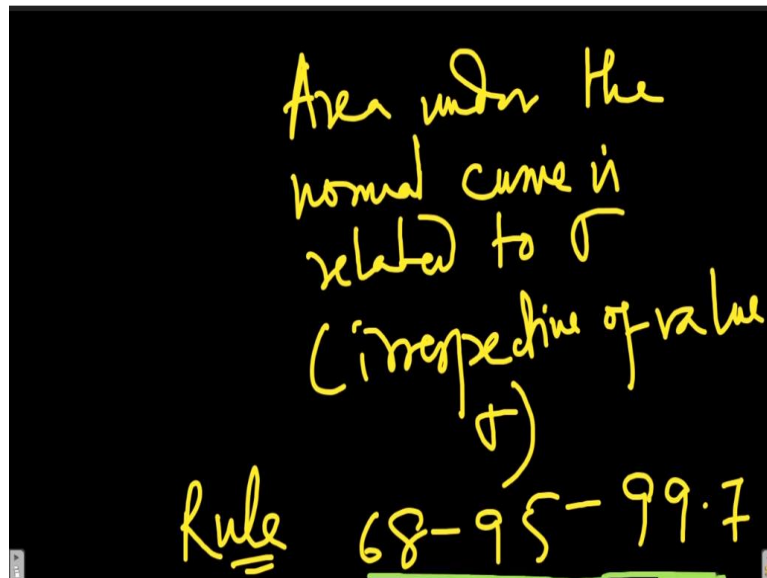 Area under the
normal curve is
related to σ
(irrespective of value
σ)
Rule 68-95-99.7